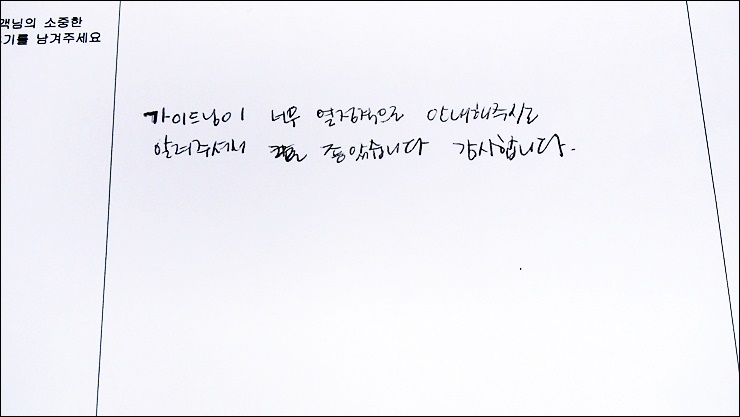 객님의 소중한
기를 남겨주세요
가이드님이 너무 열정적으로 안내해주시고
알려주셔서 좋았습니다 감사합니다.